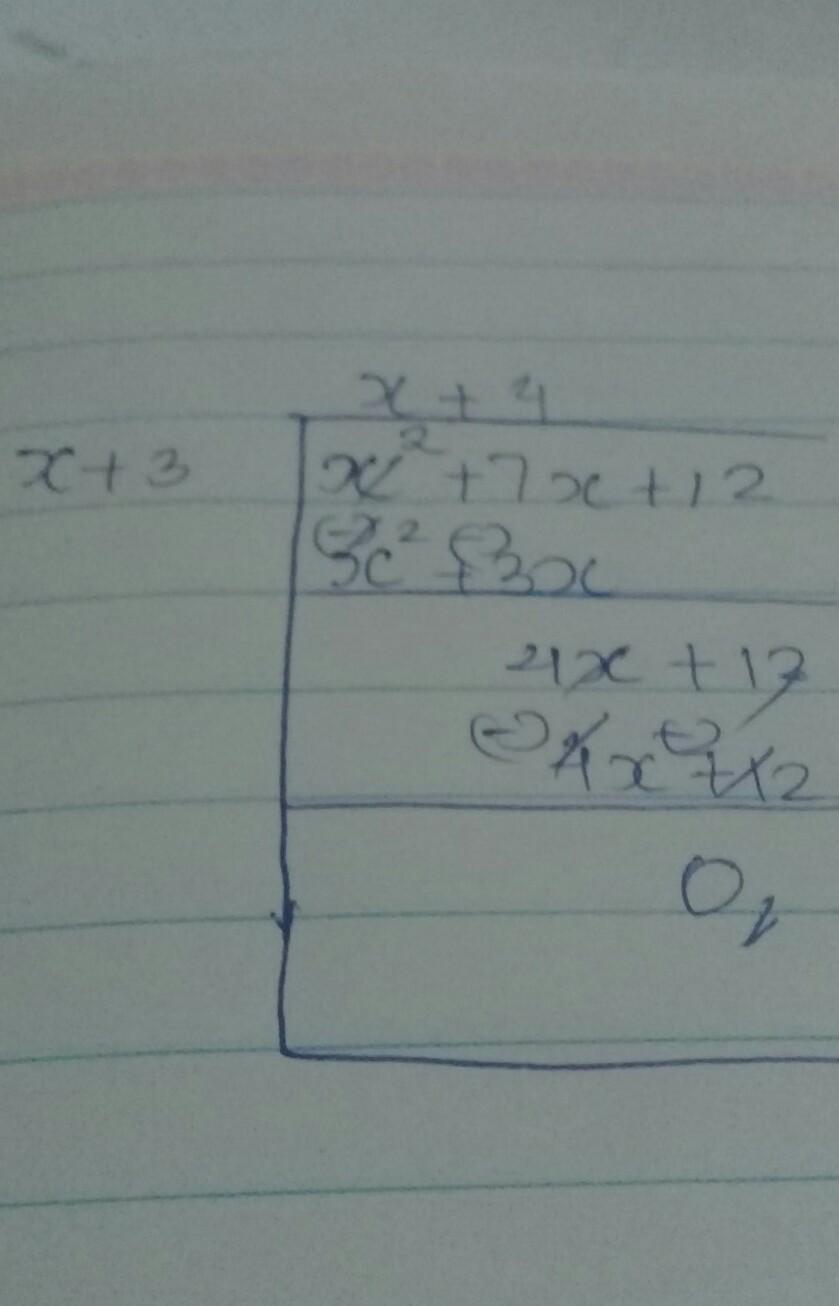 x + 4
x + 3
x² + 7x + 12
(-) (-)
x² + 3x
4x + 12
(-) 4x (-) + 12
0,